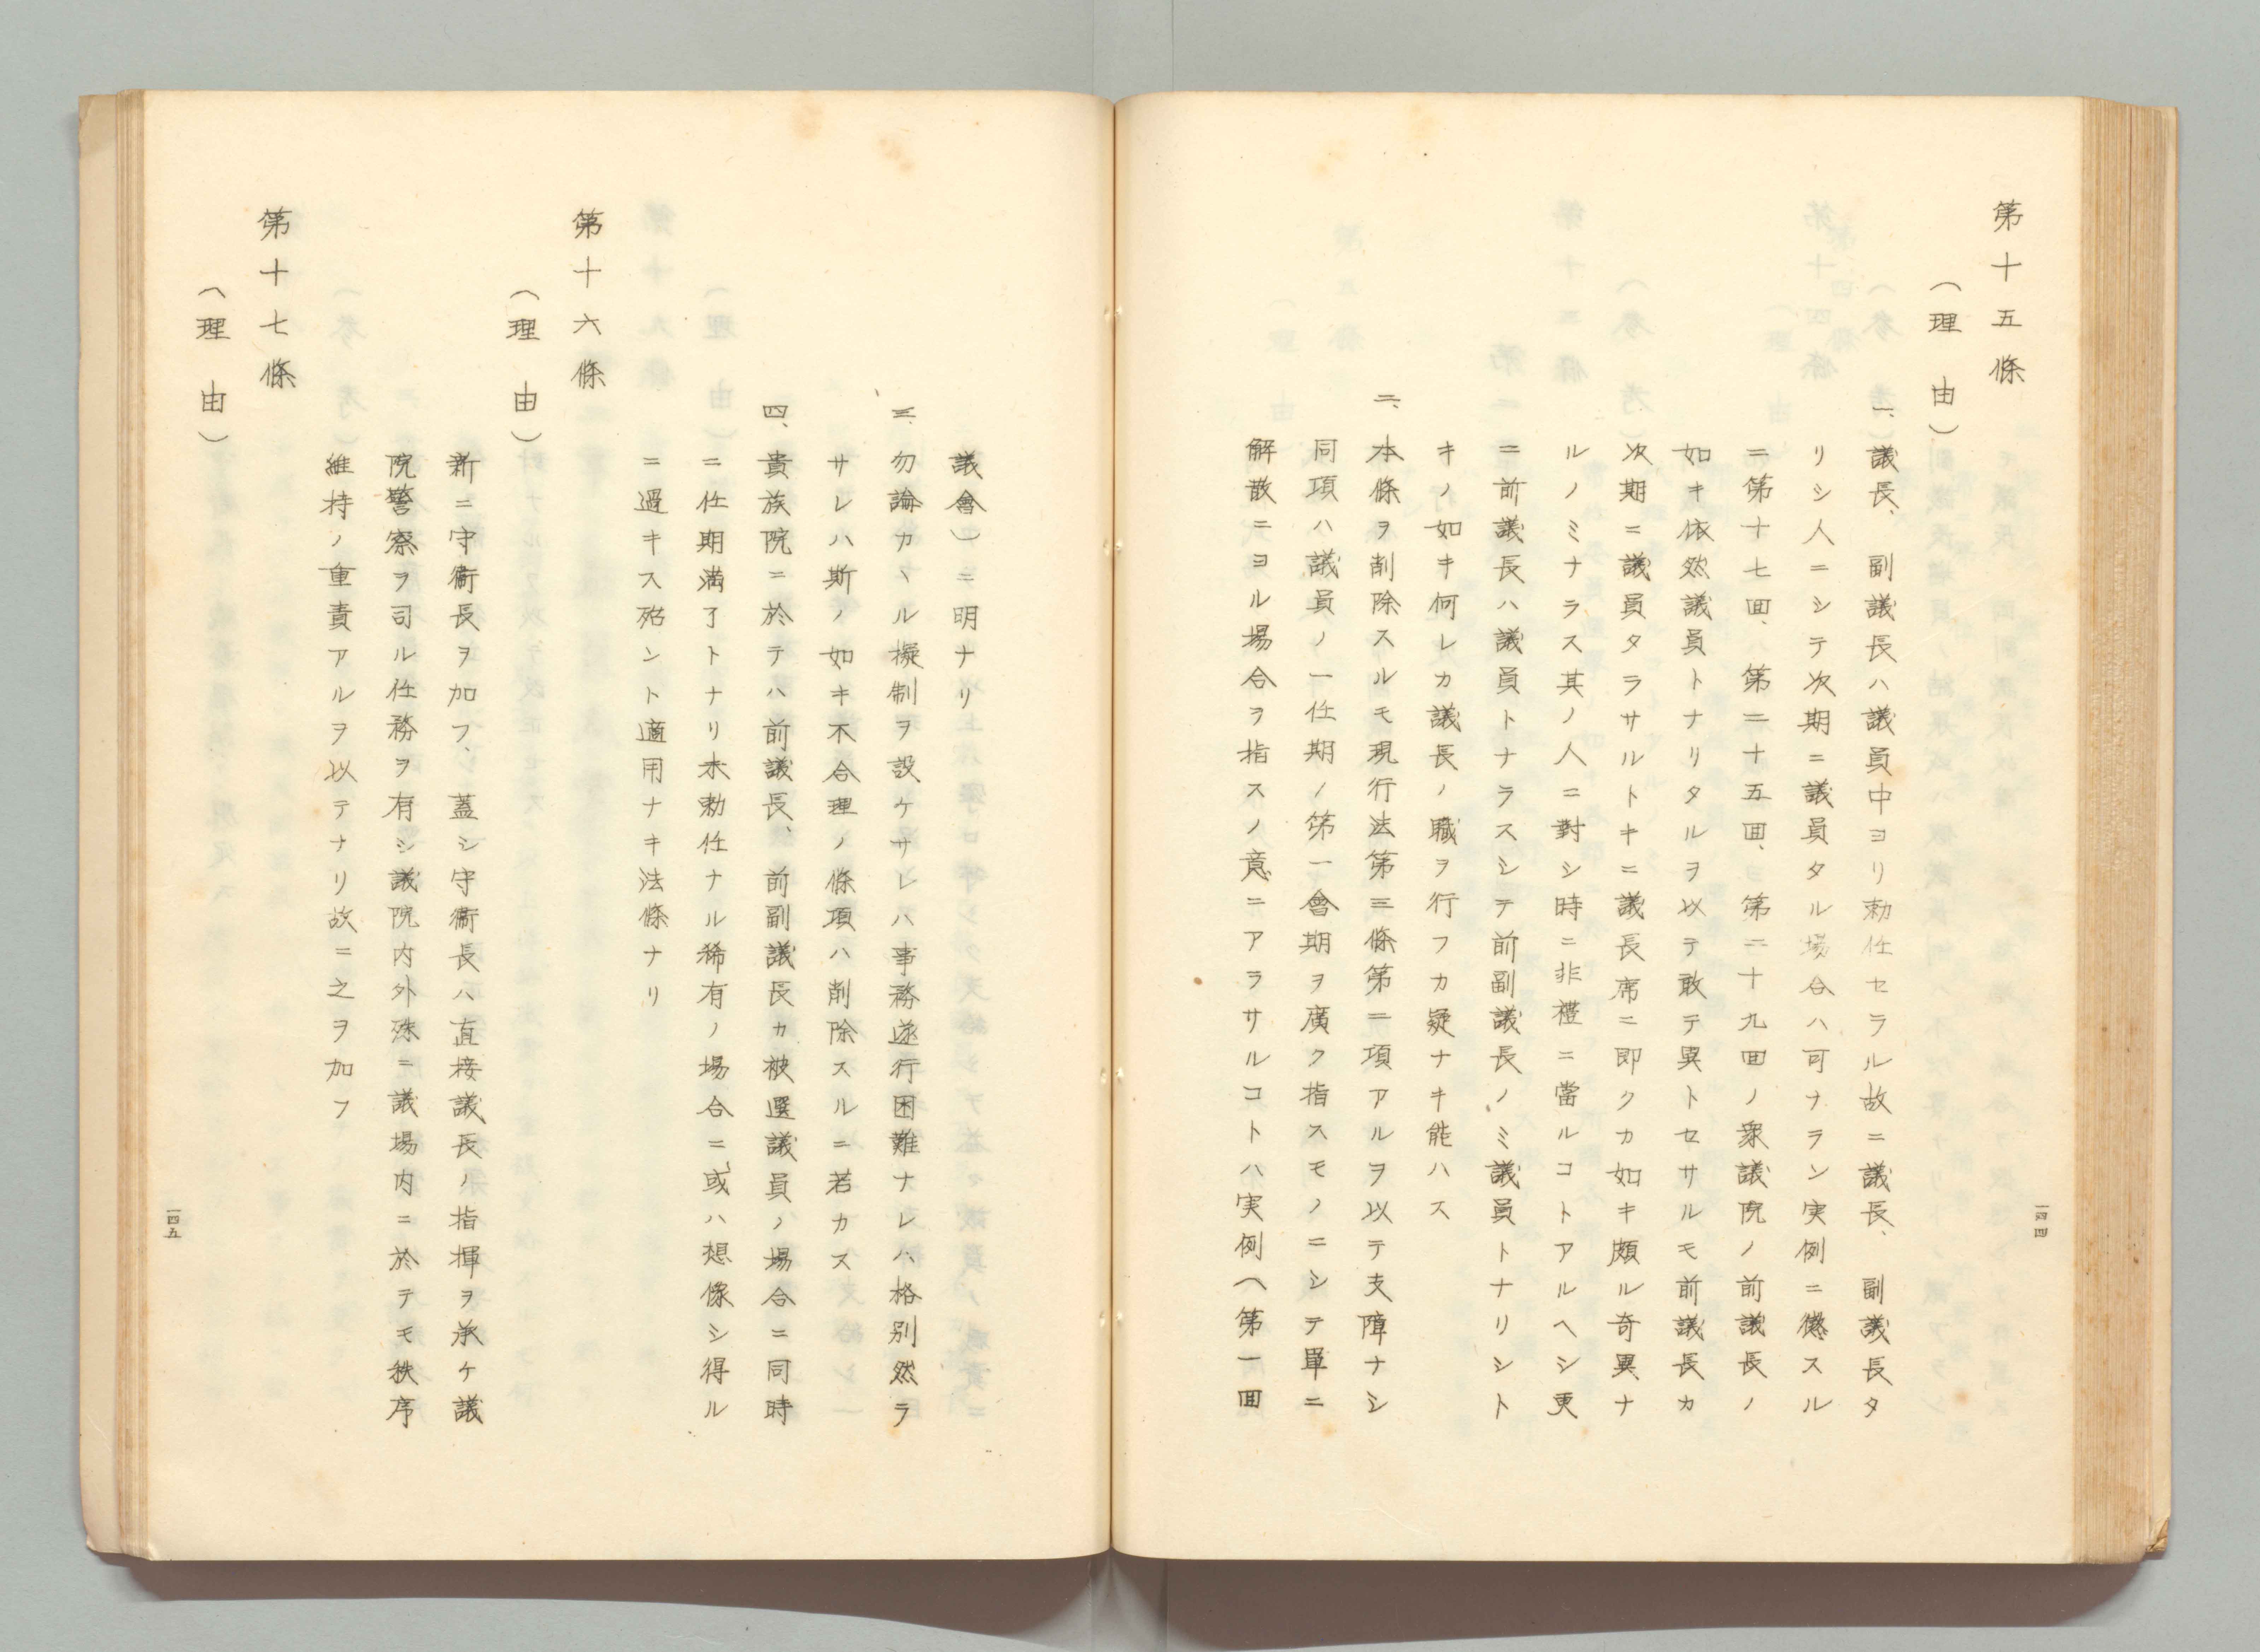 第十五條
（理由）
一、議長、副議長ハ議員中ヨリ勅任セラル故ニ議長、副議長タ
リシ人ニシテ次期ニ議員タル場合ハ可ナラン実例ニ徴スル
ニ第十七回、第二十五回、第二十九回ノ衆議院ノ前議長ノ
如キ依然議員トナリタルヲ以テ敢テ異トセサルモ前議長カ
次期ニ議員タラサルトキニ議長席ニ即クカ如キ頗ル奇異ナ
ルノミナラス其ノ人ニ對シ時ニ非禮ニ當ルコトアルヘシ更
ニ前議長ハ議員トナラスシテ前副議長ノミ議員トナリシト
キノ如キ何レカ議長ノ職ヲ行フカ疑ナキ能ハス
二、本條ヲ削除スルモ現行法第三條第二項アルヲ以テ支障ナシ
同項ハ議員ノ一任期ノ第一會期ヲ廣ク指スモノニシテ單ニ
解散ニヨル場合ヲ指スノ意ニアラサルコトハ実例（第一回
一四四
議會）ニ明ナリ
三、勿論カヽル擬制ヲ設ケサレハ事務遂行困難ナレハ格別然ラ
サレハ斯ノ如キ不合理ノ條項ハ削除スルニ若カス
四、貴族院ニ於テハ前議長、前副議長カ被選議員ノ場合ニ同時
ニ任期満了トナリ未勅任ナル稀有ノ場合ニ或ハ想像シ得ル
ニ過キス殆ント適用ナキ法條ナリ
第十六條
（理由）
新ニ守衞長ヲ加フ、蓋シ守衞長ハ直接議長ノ指揮ヲ承ケ議
院警察ヲ司ル任務ヲ有シ議院内外殊ニ議場内ニ於テモ秩序
維持ノ重責アルヲ以テナリ故ニ之ヲ加フ
第十七條
（理由）
一四五